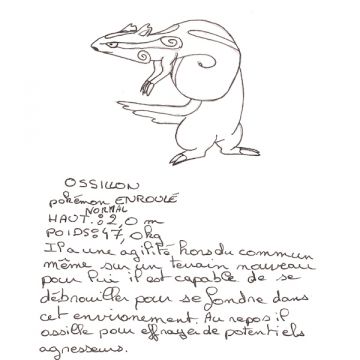 OSSILLON
pokémon ENROULÉ
NORMAL
HAUT: 2,0 m
POIDS: 47,0kg
Il a une agilité hors du commun
même sur un terrain nouveau
pour lui il est capable de se
débrouiller pour se fondre dans
cet environement. Au repos il
ossille pour effrayer de potentiels
agresseurs.